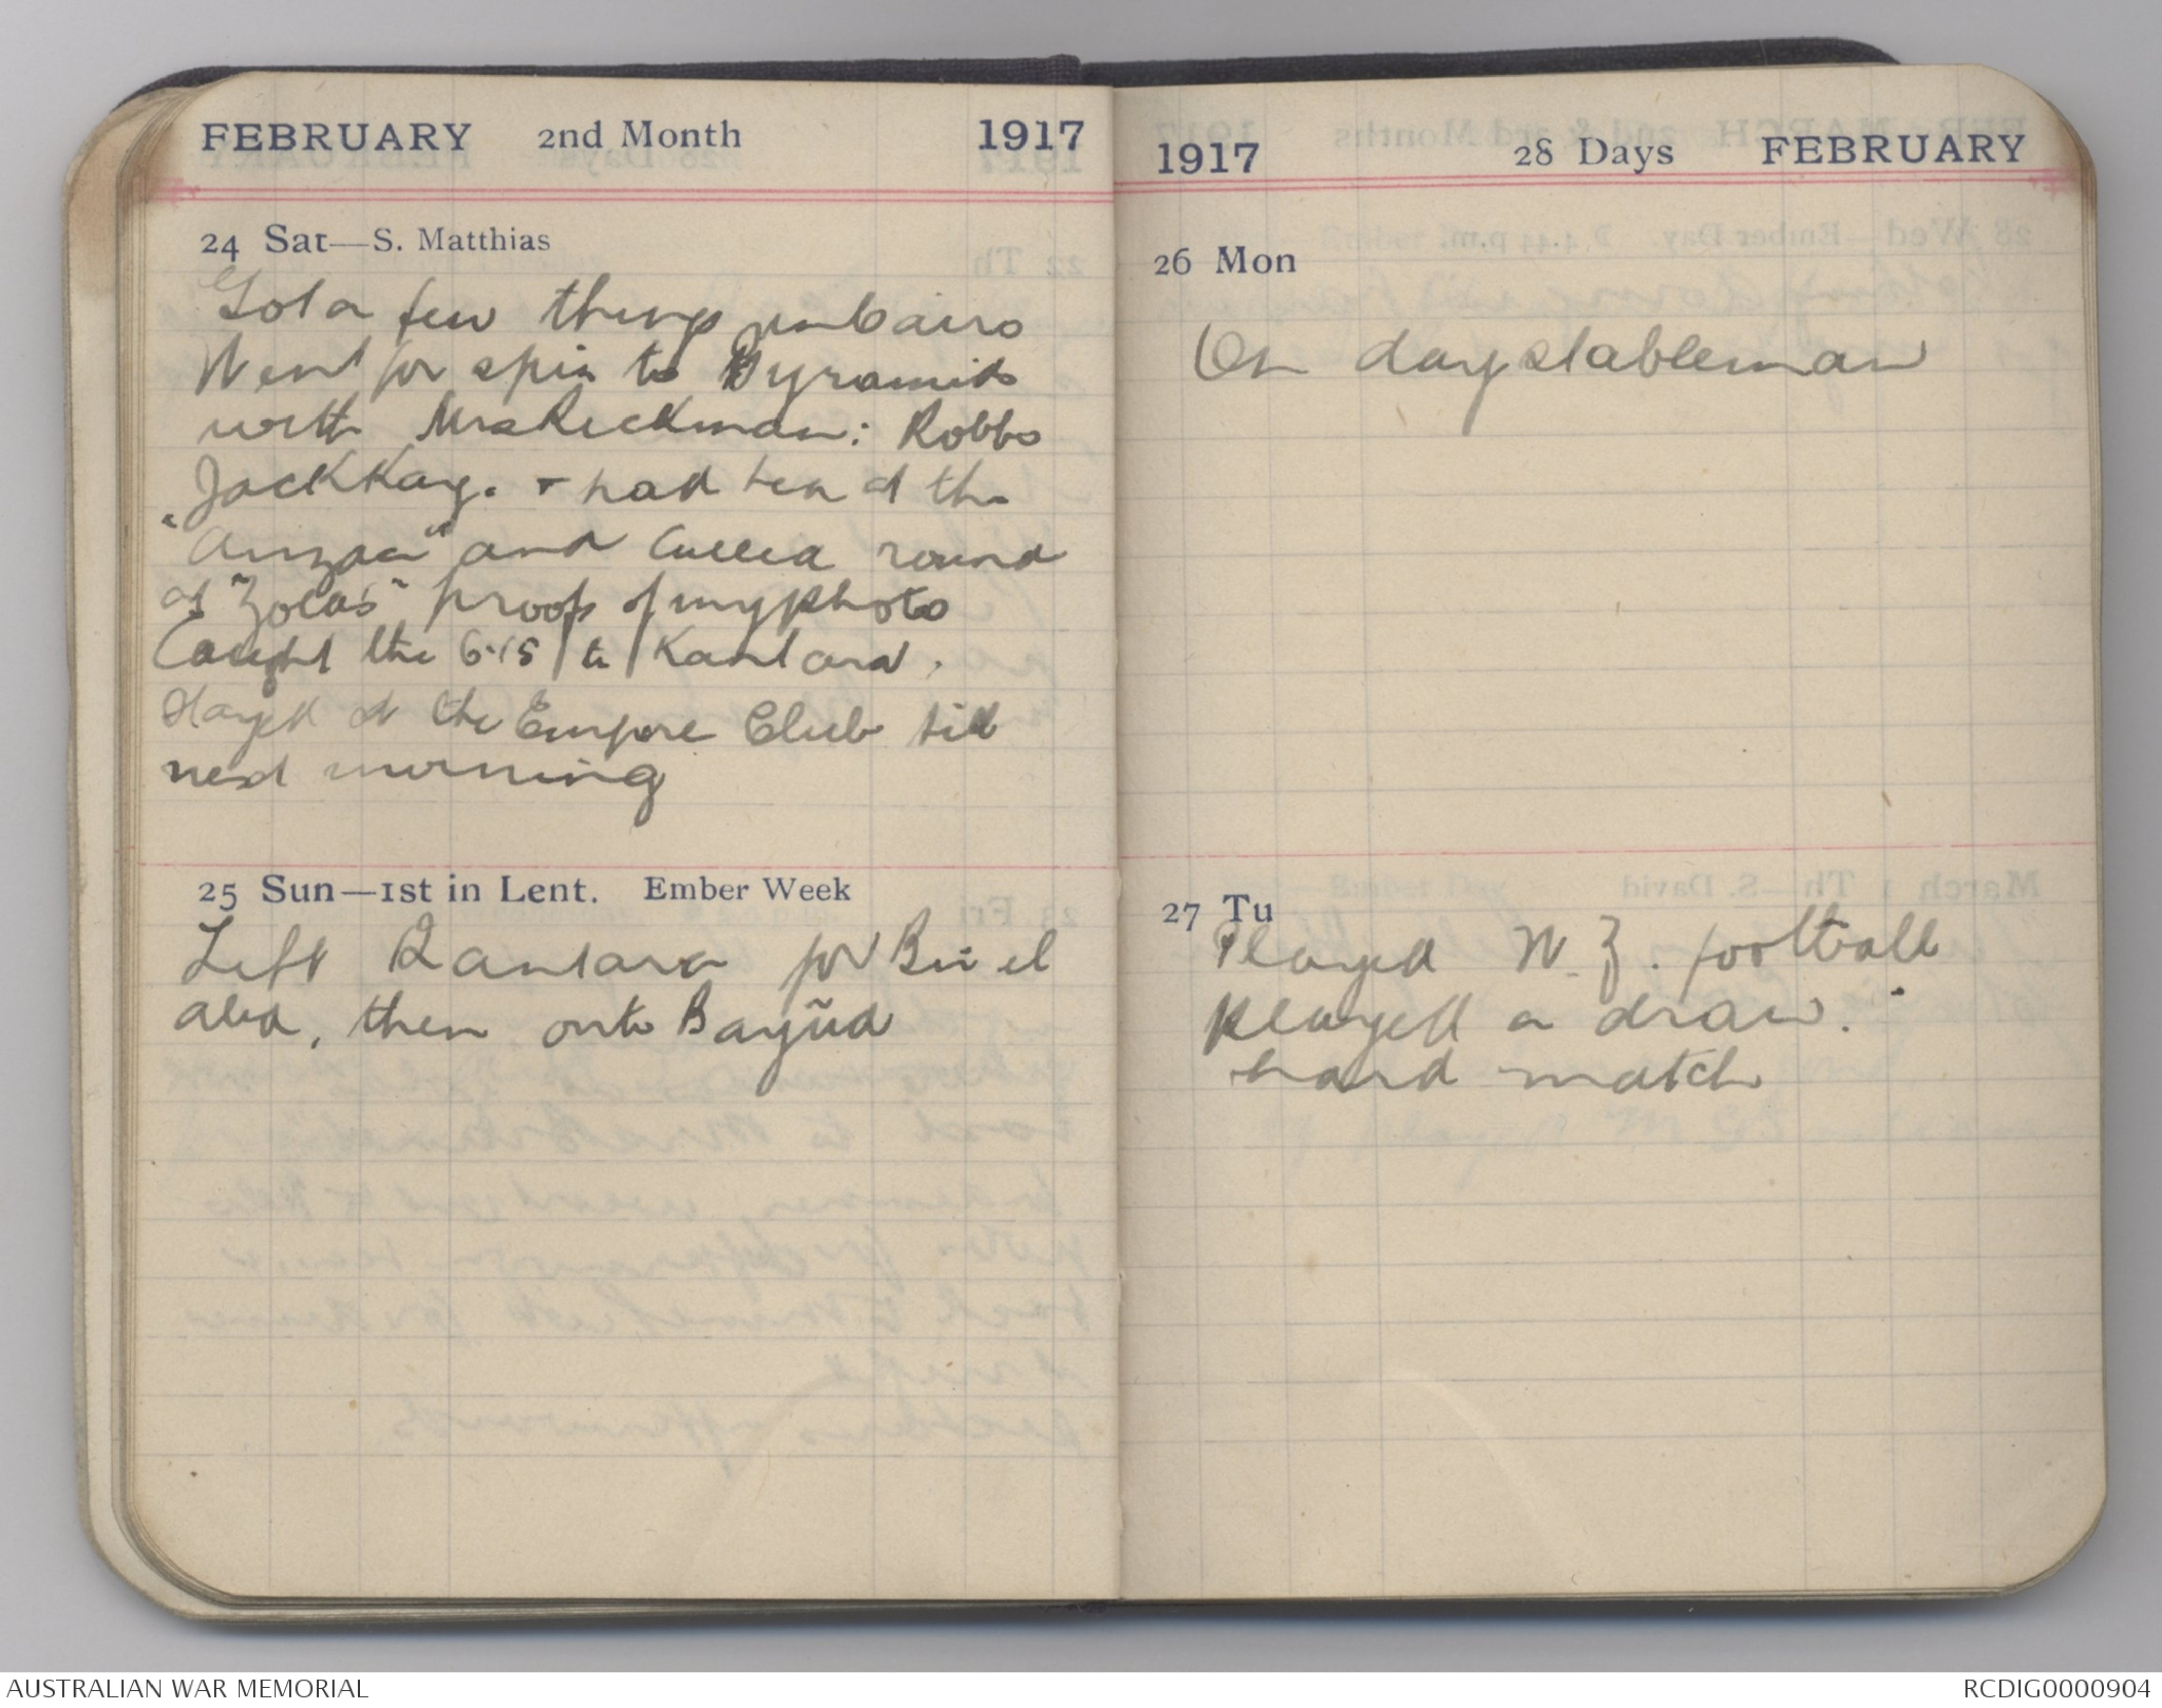 FEBRUARY 2nd Month 1917
24 Sat—S. Matthias
Got a few things in Cairo
Went for spin to Pyramids
with Mrs Rickman: Robbo
Jack Kay. + had tea at the
"Anzac" and Called round
at "Zolas" proofs of my photo
Caught the 6.15 to Kantara.
Stayed at the Empire Club till
next morning
25 Sun—1st in Lent. Ember Week
Left Qantara for Bir el
abd, then onto Bayüd
1917 28 Days FEBRUARY
26 Mon
On day stableman
27 Tu
Played N.Z. football
played a draw.
hard match
AUSTRALIAN WAR MEMORIAL
RCDIG0000904